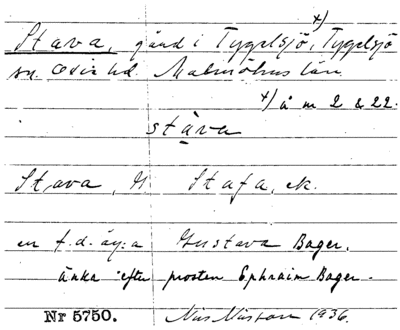 x)
Stava, gård i Tygelsjö, Tygelsjö
sn. Oxie hd. Malmöhus län.
x) å m 2 & 22.
stáva
Stava, H Stafa, ek.
en f.d. äg:a Gustava Bager.
änka efter prosten Ephraim Bager.
Nr 5750. Nils Nilsson 1936.